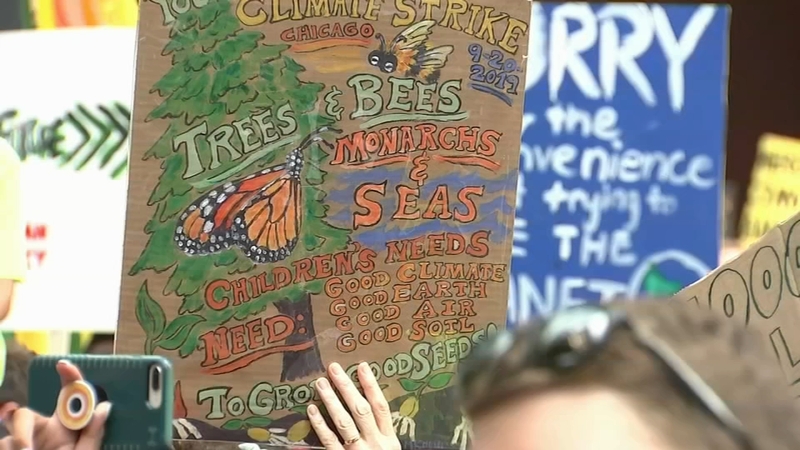 YOU
CLIMATE STRIKE
CHICAGO
9-20-
2019
TREES & BEES
MONARCHS
&
SEAS
CHILDREN'S NEEDS
NEED:
GOOD CLIMATE
GOOD EARTH
GOOD AIR
GOOD SOIL
TO GROW GOOD SEEDS!
URRY
the
nvenience
trying to
E THE
ANET